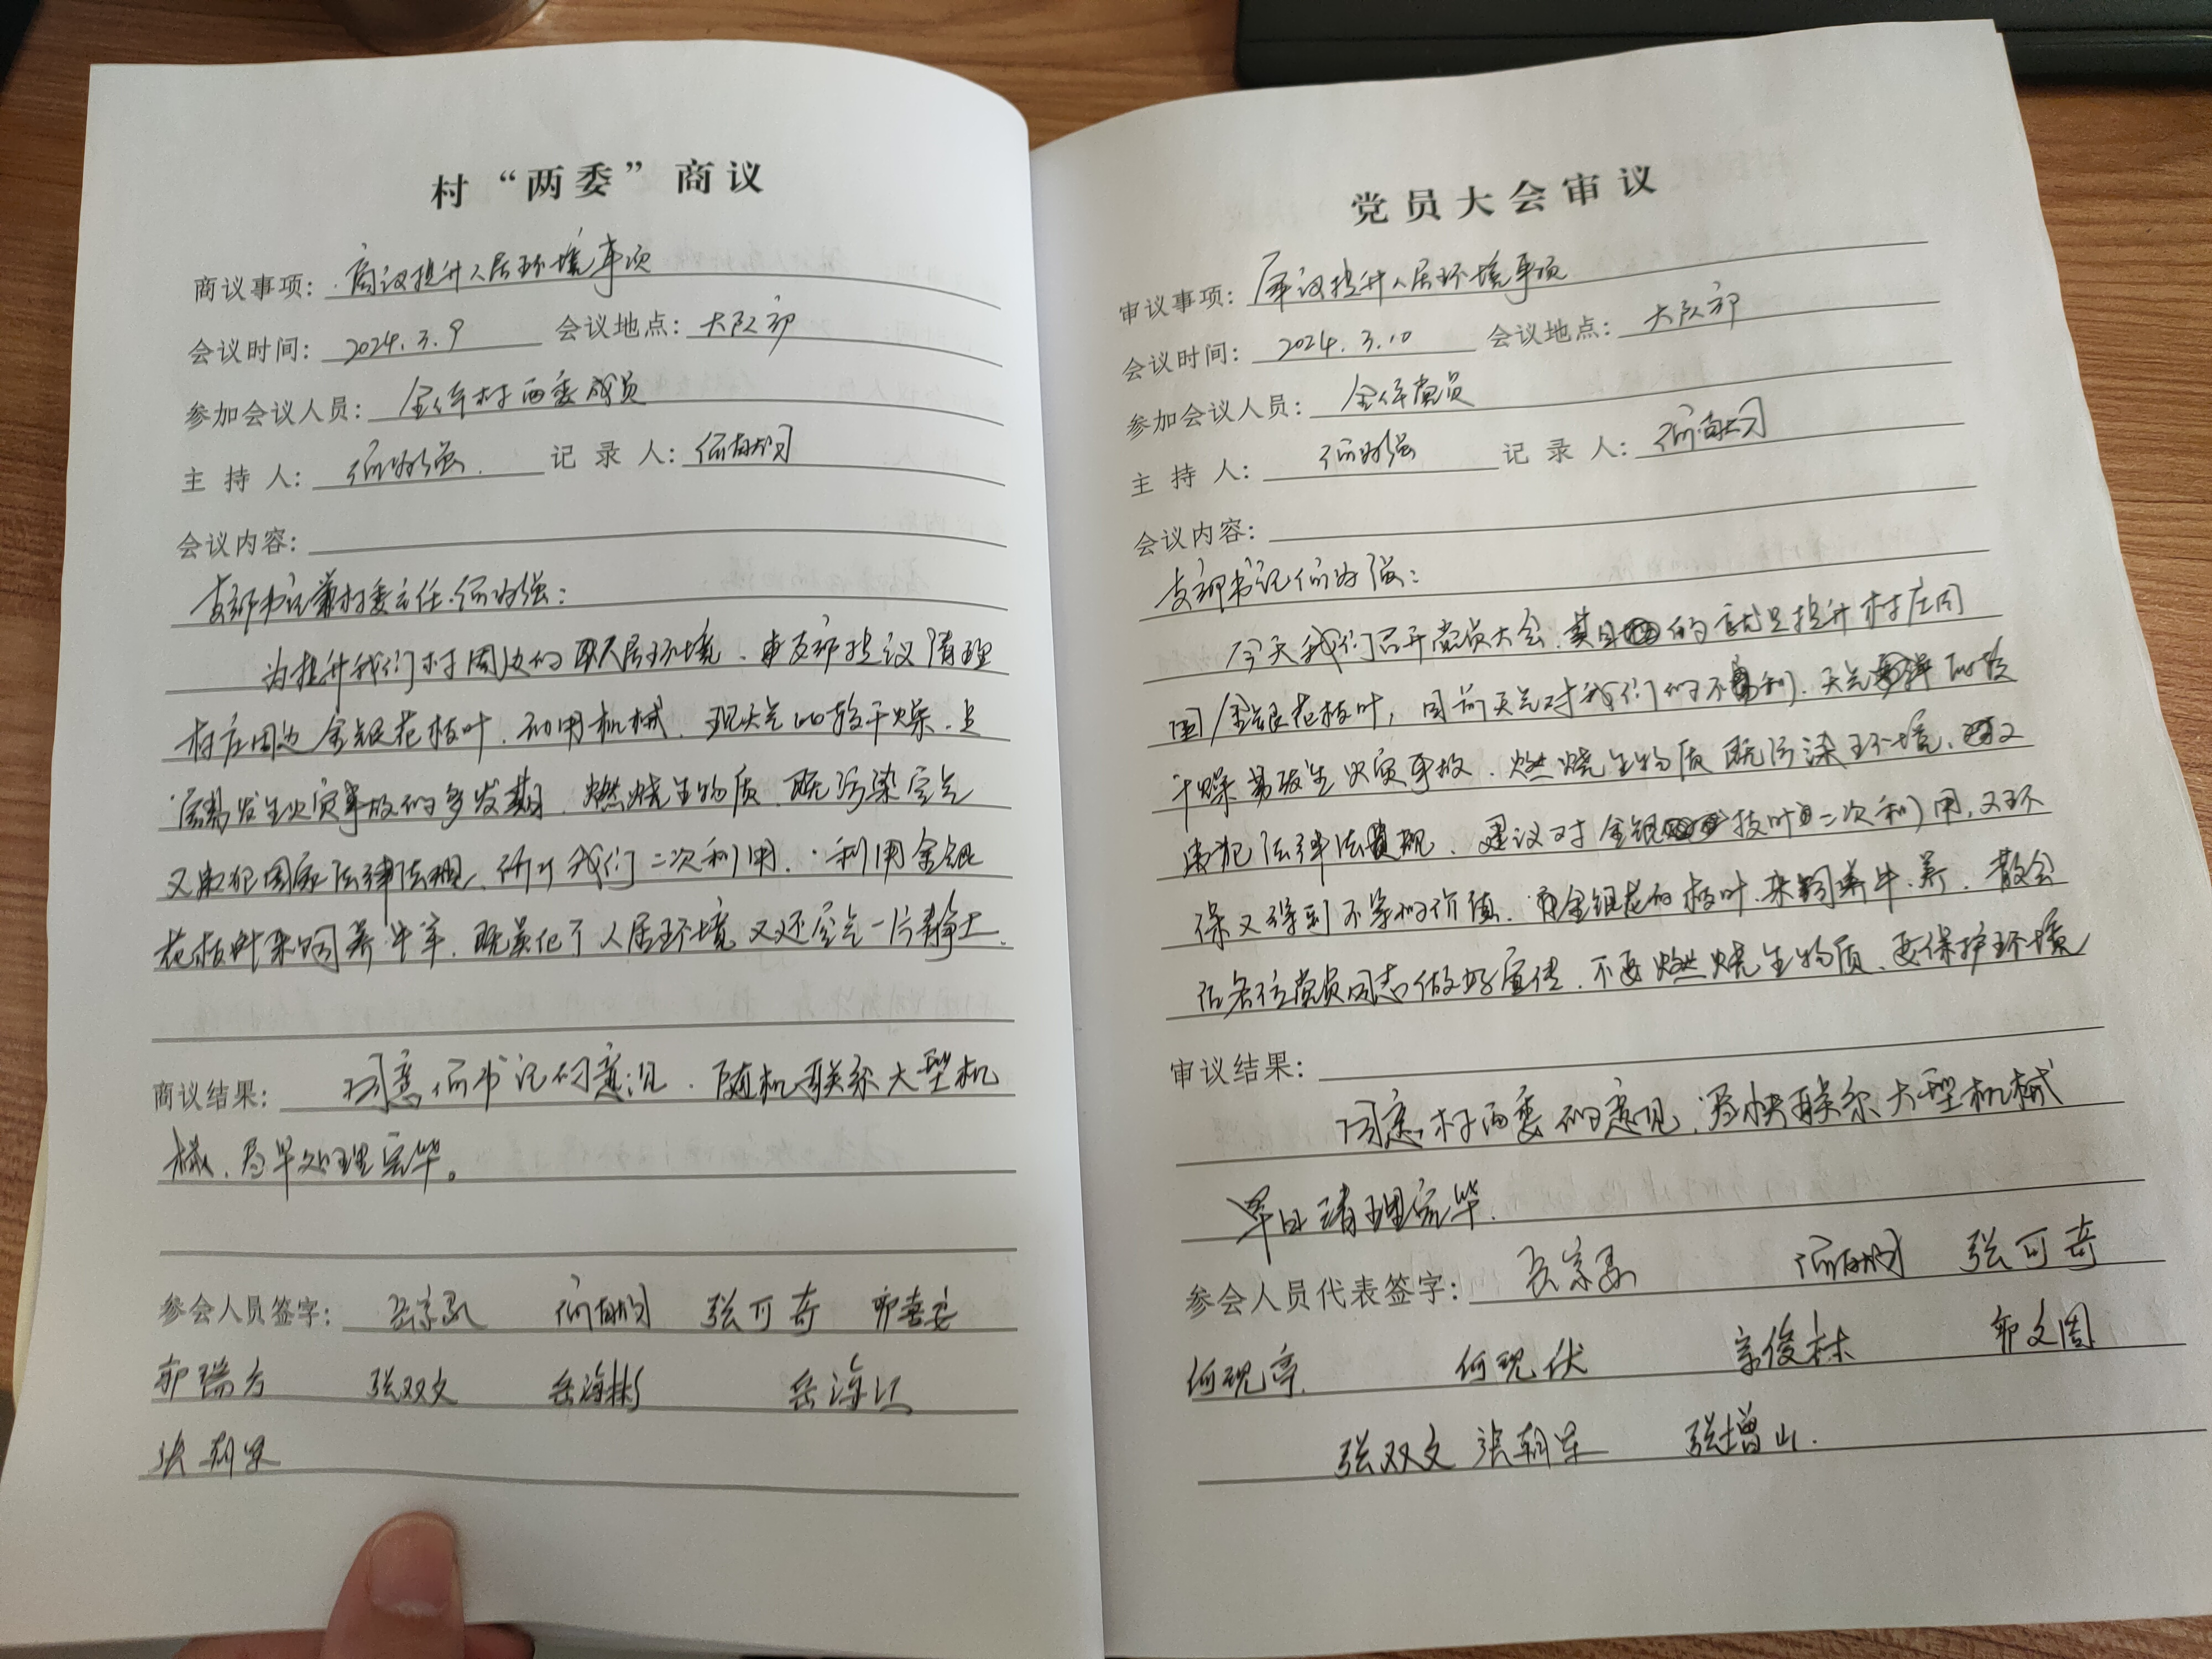 村“两委”商议
商议事项：商议提升人居环境事项
会议时间：2024.3.9 会议地点：大队部
参加会议人员：全体村两委成员
主持人：何 强 记录人：何
会议内容：
支部书记兼村委主任 何 强：
为提升我们村周边的人居环境、支部提议清理
村庄周边金银花枝叶、利用机械、现天气比较干燥、且
属易发生火灾事故的多发期、燃烧生物质、既污染空气
又 犯国家法律法规、所以我们二次利用、利用金银
花枝叶来饲养牛羊、既美化了人居环境又还空气一片静土、
商议结果：同意何书记的意见、随机联系大型机
械、尽早处理完毕。
参会人员签字： 张可奇
郭瑞方 张双文 岳海彬 岳海江
张朝
党员大会审议
审议事项：审议提升人居环境事项
会议时间：2024.3.10 会议地点：大队部
参加会议人员：全体党员
主持人：何 强 记录人：何
会议内容：
支部书记何 强：
今天我们召开党员大会、其目的就是提升村庄周
围金银花枝叶，目前天气对我们们不利、天气
干燥易发生火灾事故、燃烧生物质既污染环境、又
犯法律法规、建议对金银 枝叶二次利用、又环
保又得到不等的价值、金银花的枝叶、来饲养牛、养、散会
后各位党员同志做好宣传、不要燃烧生物质、要保护环境
审议结果：
同意村两委的意见、尽快联系大型机械
早日清理完毕、
参会人员代表签字： 张可奇
何现亭 何现伏 宗俊林 郭文周
张双文 张朝 张增山